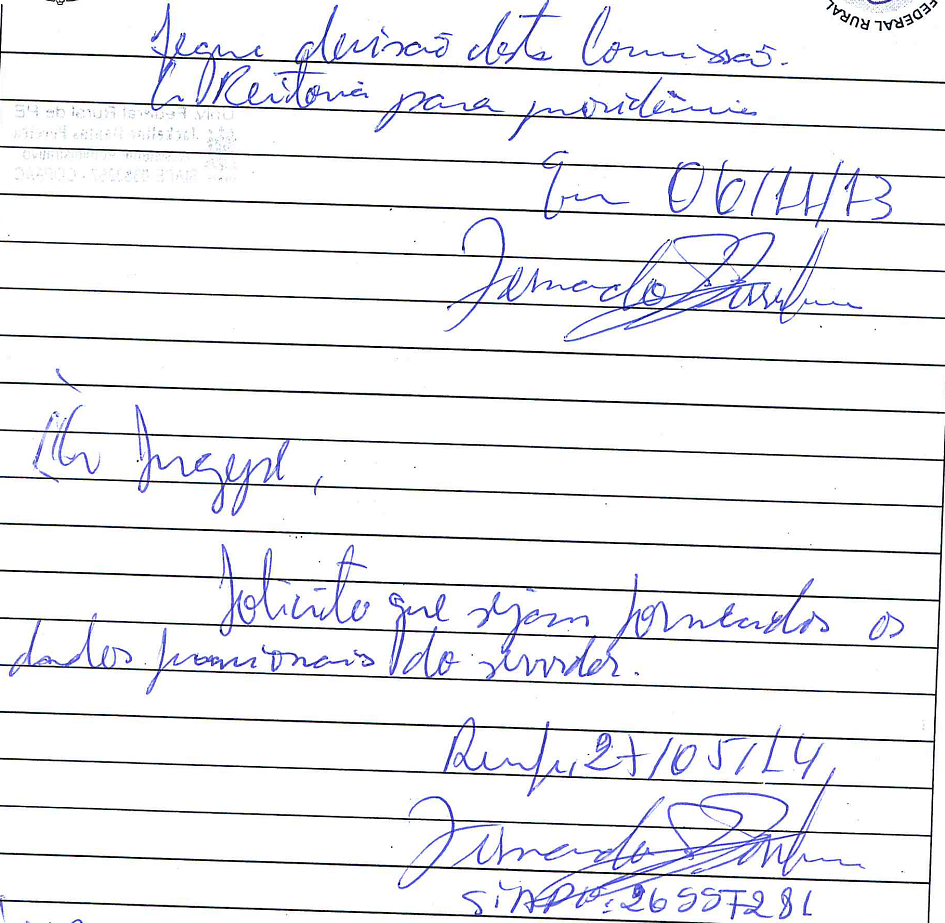 FEDERAL RURAL
Segue decisão desta Comissão.
À Reitoria para providência
Univ. Federal Rural de PE
Em 06/11/13
Fernando
Ao Sugep,
Solicito que sejam fornecidos os
dados funcionais do servidor.
Recife, 27/05/14,
Fernando
SIAPE: 26557281